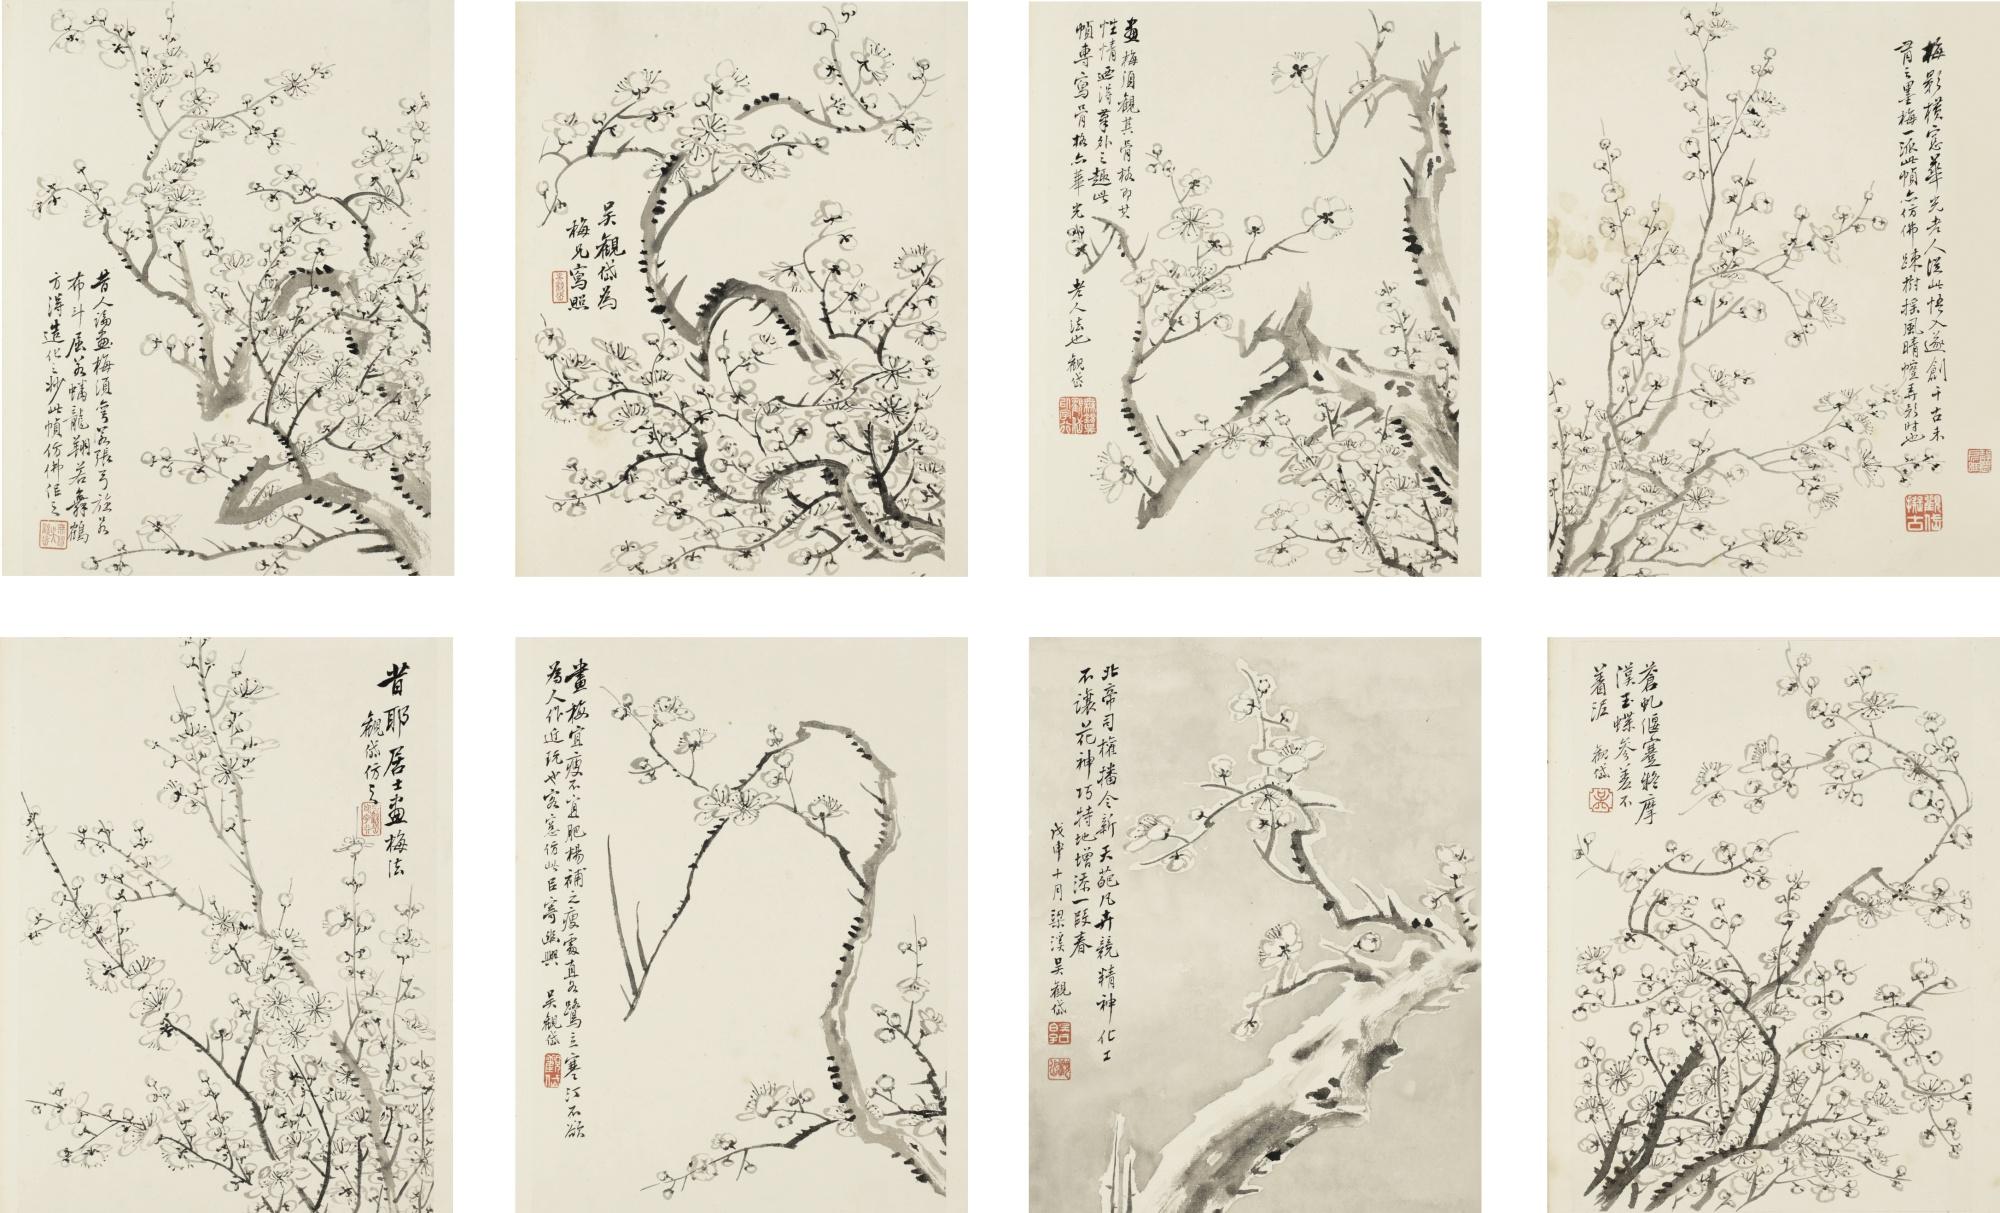 昔人論畫梅須彎若張弓旋若
布斗屈若蟠龍翔若舞鶴
方得造化之妙此幀仿佛作之
吳觀岱為
梅兄寫照
畫梅須觀其骨格即其
性情迺得筆外之趣此
幀專寫骨格亦華光老人法也 觀岱
梅影橫窓華光老人從此悟入遂創千古未
有之墨梅一派此幀亦仿佛疎樹搖風晴窗弄影時也
觀岱撫古
昔耶居士畫梅法
觀岱仿之
畫梅宜瘦不宜肥楊補之瘦處直如鷺立寒江不欲
為人作近玩也客窓仿此㠯寄逸興 吳觀岱
觀岱
北帝司權播令新天葩凡卉競精神化工
不讓花神巧特地增添一段春
戊申十月梁溪吳觀岱
蒼虬偃蹇將摩
漠玉蝶參差不
著泥 觀岱